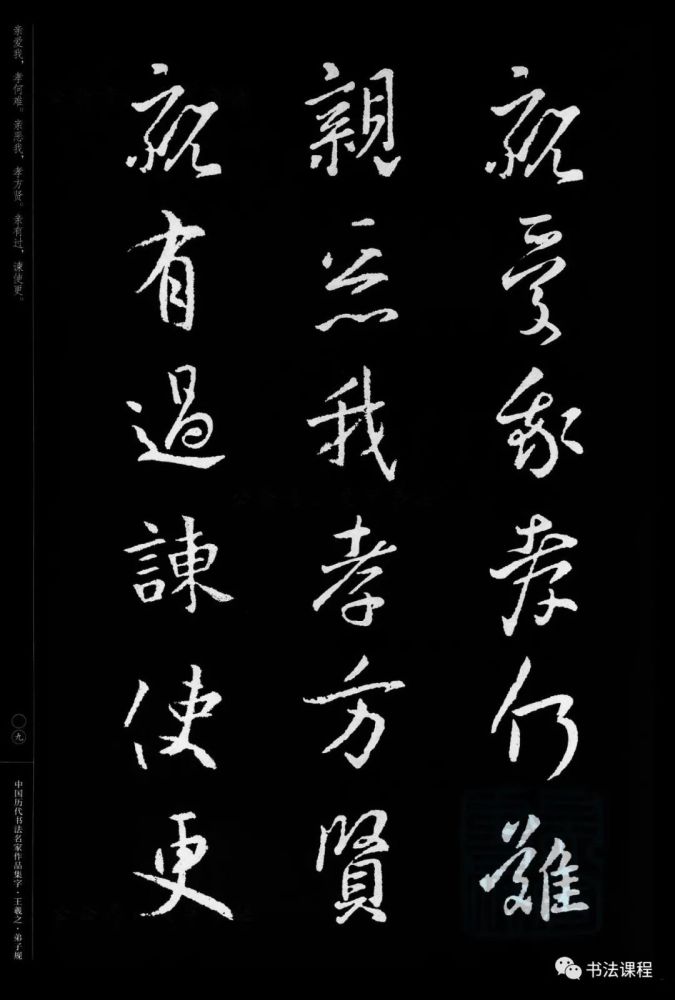 親愛我孝何難
親惡我孝方賢
親有過諫使更
亲爱我，孝何难。亲恶我，孝方贤。亲有过，谏使更。
〇九
中国历代书法名家作品集字·王羲之·弟子规
书法课程